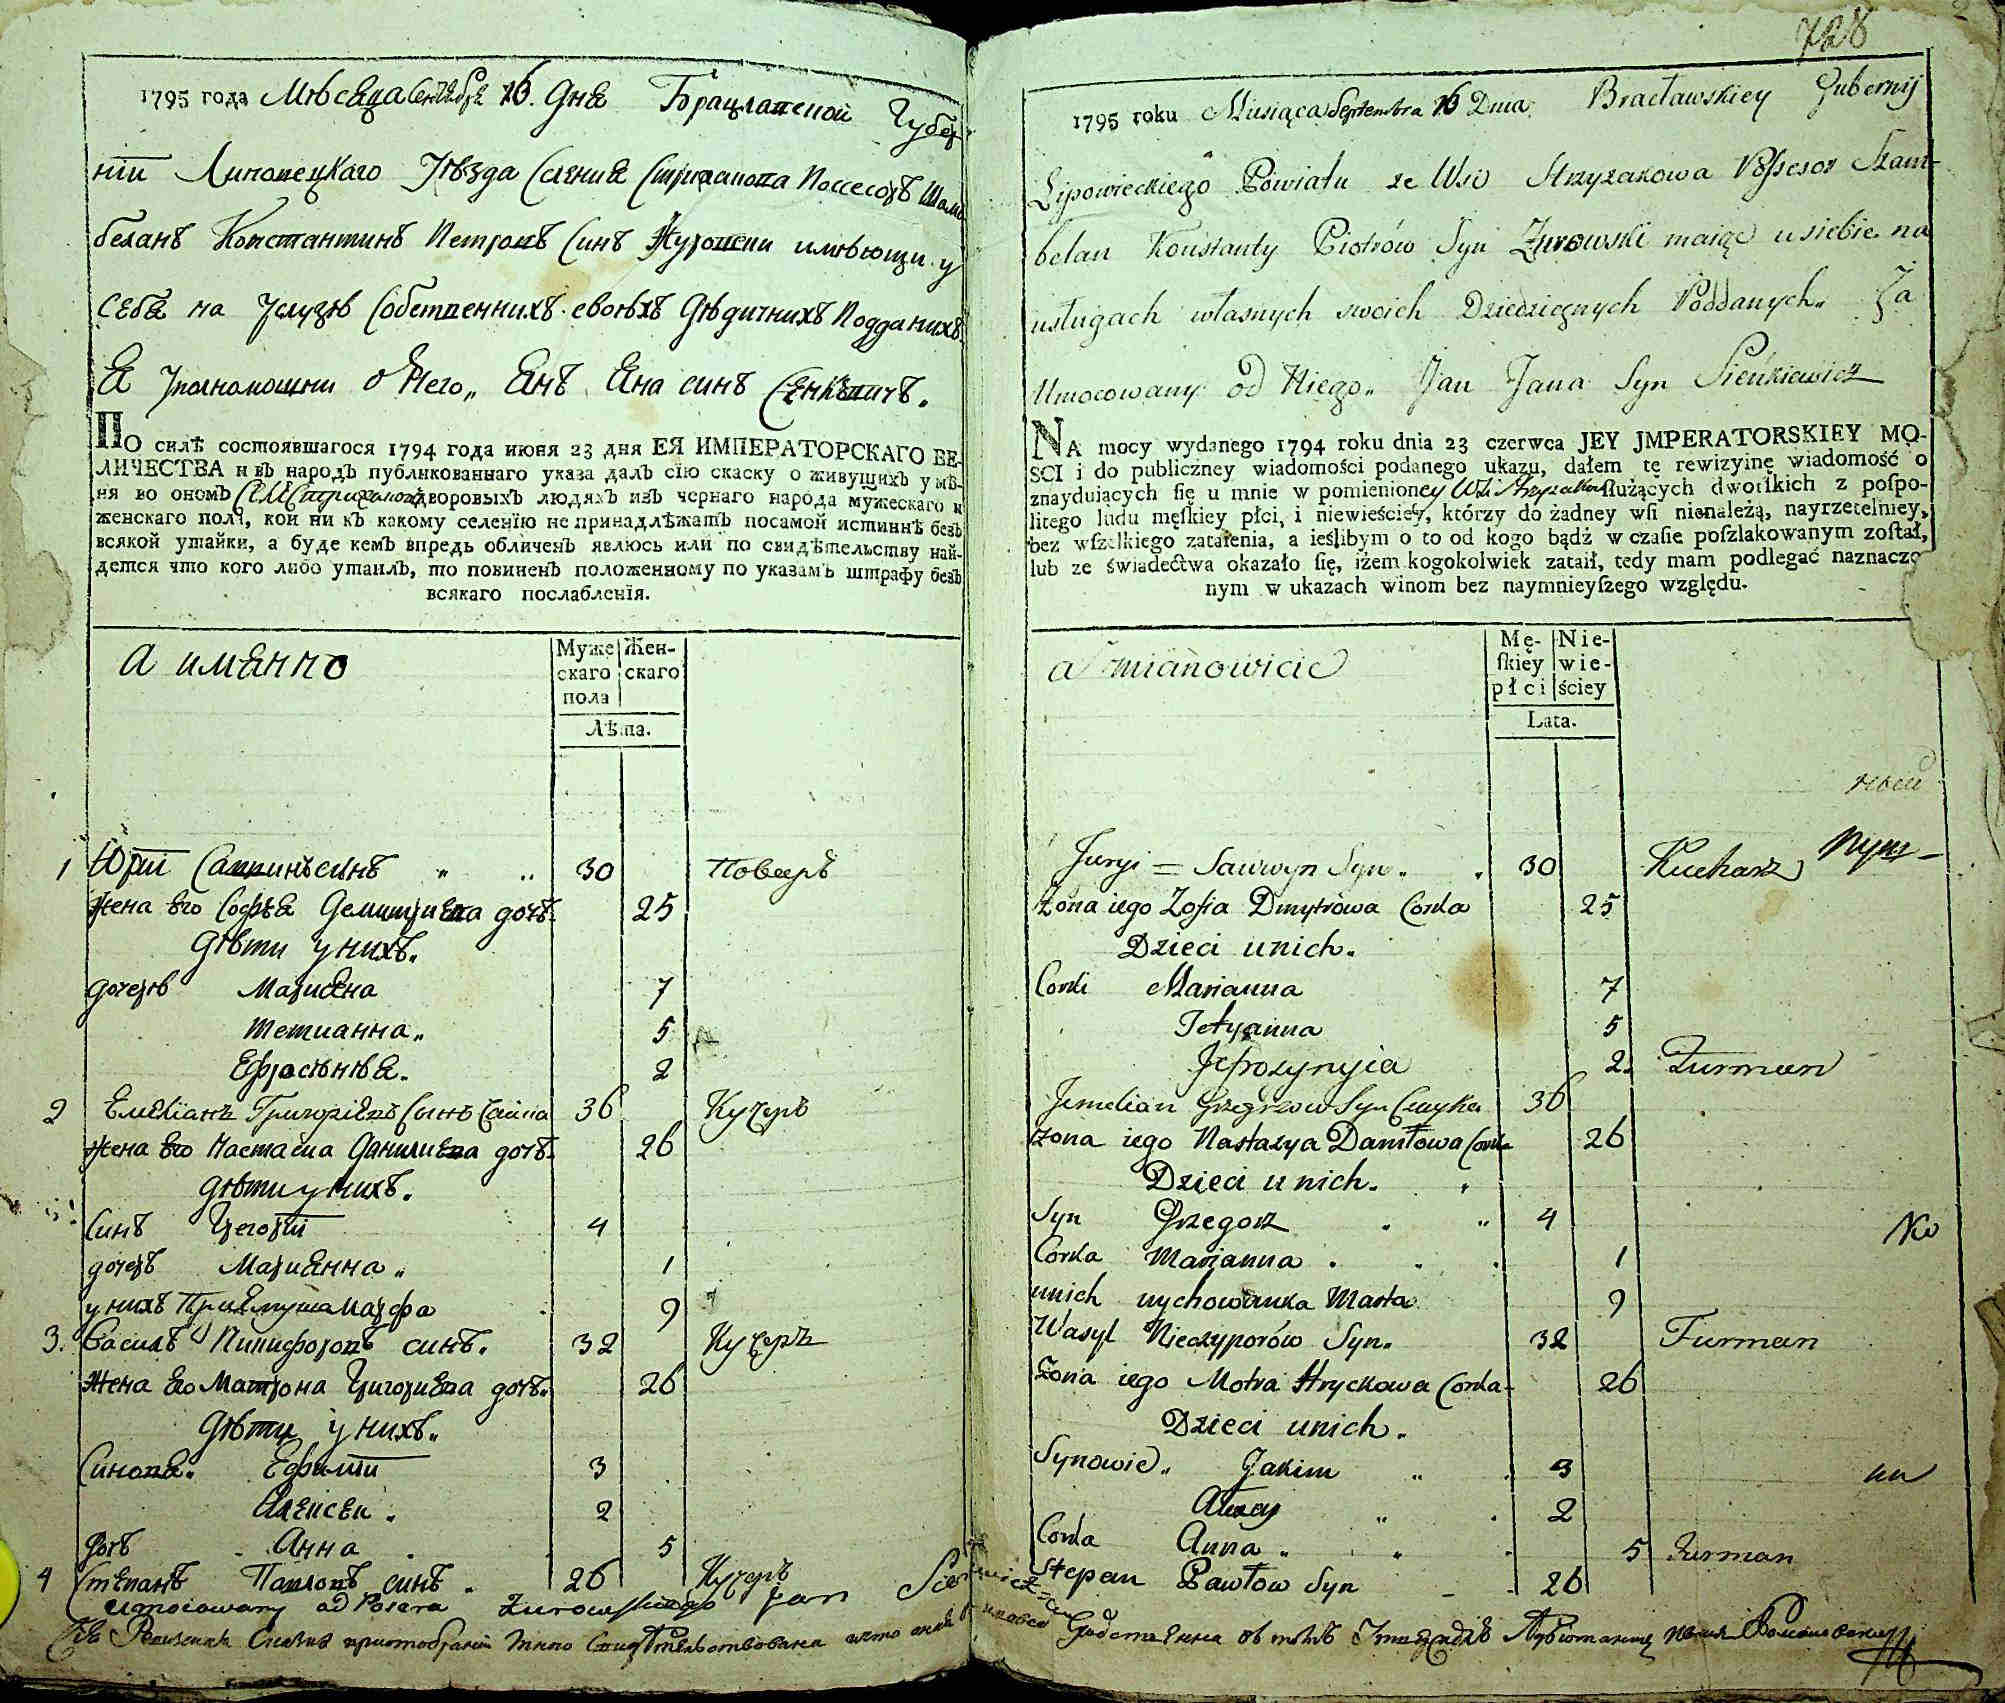 728
1795 года Мѣсяца Сентября 16. Дня Брацлавской Губер-
нїи Липовецкаго Уѣзда Селения Стрижакова Поссесоръ Шам-
беланъ Константинъ Петровъ Синъ Журовски имѣющи у
себя на Услузѣ Собственнихъ своихъ Дѣдичнихъ Подданихъ
Я Уполномощни о Него„ Янъ Яна синъ Сенкѣвичъ.
ПО силѣ состоявшагося 1794 года июня 23 дня ЕЯ ИМПЕРАТОРСКАГО ВЕ-
ЛИЧЕСТВА и въ народъ публикованнаго указа далъ сїю скаску о живущихъ у мѣ-
ня во ономъ Се. Стрижаковѣ дворовыхъ людяхъ изъ чернаго народа мужескаго и
женскаго пола, кои ни къ какому селенїю не принадлѣжатъ посамой истиннѣ безъ
всякой утайки, а буде кемъ впредь обличенъ явлюсь или по свидѣтельству най-
дется что кого либо утаилъ, то повиненъ положенному по указамъ штрафу безъ
всякаго послабленїя.
а имянно
Муже Жен-
скаго скаго
пола
Лѣта.
1 Юрїй Саввинъ синъ „ „ 30 Поваръ
Жена Его Софѣя Демитриева дочъ. 25
Дѣти у нихъ.
дочерѣ Марияна 7
Тетианна„ 5
Ефросѣнѣя. 2
2 Емелїанъ Григорїевъ Синъ 36 Кучеръ
Жена Его Настасиа Данилиева дочъ. 26
Дѣти у нихъ.
Синъ Григорїй 4
дочерь Марианна„ 1
у нихъ Приемуша Марфа 9
3. Василъ Никифоровъ синъ. 32 Кучеръ
Жена Его Матрона Григориева дочъ. 26
Дѣти у нихъ„
Синовя. Ефимїи 3
Алексеи. 2
Дочъ Анна. 5
4 Степанъ Павловъ синъ. 26 Кучеръ
Umocowany od Posesora Żurowskiego Jan Sienkiewicz
1795 roku Miesiąca Septembra 16 Dnia Bracławskiey Gubernij
Lipowieckiego Powiatu ze Wsi Strzyzakowa Possesor Szam-
belan Konstanty Piotrów Syn Żurowski maiąc u siebie na
usługach własnych swoich Dziedzicznych Poddanych„ Ja
Umocowany od Niego„ Jan Jana Syn Sieńkiewicz
NA mocy wydanego 1794 roku dnia 23 czerwca JEY JMPERATORSKIEY MO-
SCI i do publiczney wiadomości podanego ukazu, dałem tę rewizyinę wiadomość o
znayduiących ſię u mnie w pomienioney Wsi Strzyzakow ſłużących dworſkich z poſpo-
litego ludu męſkiey płci, i niewieściey, którzy do żadney wſi nienależą, nayrzetelniey,
bez wſzelkiego zataienia, a ieślibym o to od kogo bądź w czaſie poſzlakowanym zoſtał,
lub ze świadectwa okazało ſię, iżem kogokolwiek zataił, tedy mam podlegać naznaczo
nym w ukazach winom bez naymnieyſzego względu.
a mianowicie
Mę- Nie-
ſkiey wie-
płci ściey
Lata.
Juryi = Sawwyn Syn. 30 Kucharz
Zona iego Zofia Dmytrowa Corka 25
Dzieci u nich.
Corki Marianna 7
Tetyanna 5
Jefrozynyia 2. Furman
Jemelian Grzegrzow Syn 36
Zona iego Nastazya Daniłowa Corka 26
Dzieci u nich.
Syn Grzegorz „ 4
Corka Marianna. 1
u nich wychowanka Marta 9
Wasyl Nieczyporów Syn. 32 Furman
Zona iego Motra Hryckowa Corka 26
Dzieci u nich.
Synowie„ Jakim „ 3
Alexy „ 2
Corka Anna„ 5 Furman
Stepan Pawłow Syn 26